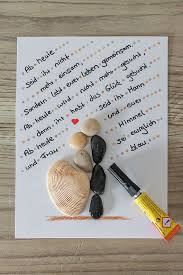 Ab heute
seid ihr nicht
mehr einsam,
Sondern lebt euer Leben gemeinsam.
Ab heute wird nicht mehr gesucht,
denn ihr habt das Glück gebucht
Ab heute seid ihr Mann
und Frau und euer
Himmel
sei ewiglich
blau.